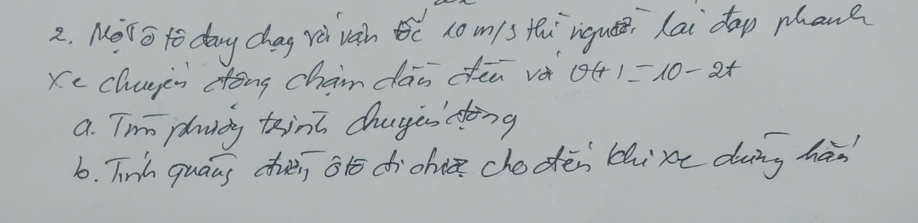 2. Một ô tô đang chạy với vận tốc 10 m/s thì người lái đạp phanh
xe chuyển động chậm dần đều với v(t) = 10 - 2t
a. Tìm phương trình chuyển động
b. Tính quãng đường ô tô đi được cho đến khi xe dừng hẳn